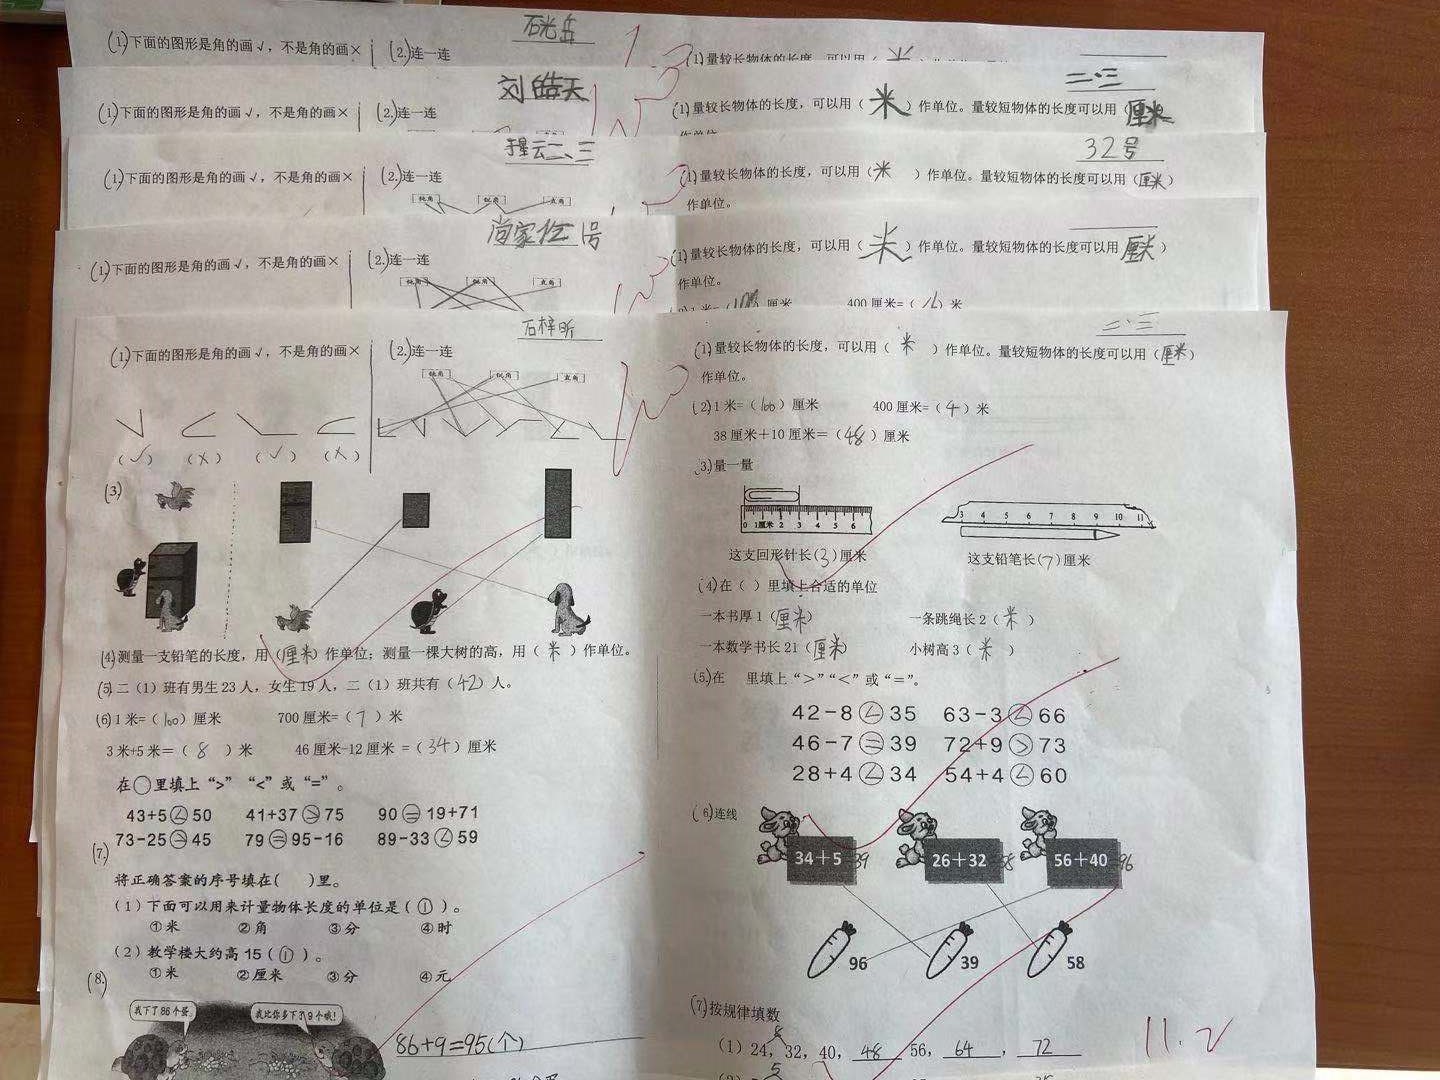 石光岳
(1.)下面的图形是角的画√，不是角的画×
(2.)连一连
(1)量较长物体的长度，可以用（米
刘皓天
二.三
(1)下面的图形是角的画√，不是角的画×
(2.)连一连
(1)量较长物体的长度，可以用（米）作单位。量较短物体的长度可以用（厘米
云二、三
32号
(1)下面的图形是角的画√，不是角的画×
(2.)连一连
锐角 钝角 直角
(1)量较长物体的长度，可以用（米）作单位。量较短物体的长度可以用（厘米）
作单位。
尚家 1号
(1)下面的图形是角的画√，不是角的画×
(2.)连一连
锐角 钝角 直角
(1)量较长物体的长度，可以用（米）作单位。量较短物体的长度可以用（厘米）
作单位。
1米=（100）厘米 400厘米=（ ）米
石梓昕
二.三
(1)下面的图形是角的画√，不是角的画×
(2.)连一连
锐角 钝角 直角
（√） （×） （√） （×）
(3)
(4)测量一支铅笔的长度，用（厘米）作单位；测量一棵大树的高，用（米）作单位。
(5)二（1）班有男生23人，女生19人，二（1）班共有（42）人。
(6)1米=（100）厘米 700厘米=（7）米
3米+5米=（8）米 46厘米-12厘米 =（34）厘米
在○里填上“>” “<”或“=” 。
43+5<50 41+37>75 90=19+71
73-25>45 79=95-16 89-33<59
(7.)
将正确答案的序号填在( )里。
(1)下面可以用来计量物体长度的单位是(①)。
①米 ②角 ③分 ④时
(2)教学楼大约高15(①)。
①米 ②厘米 ③分 ④元
(8.)
我下了86个蛋。
我比你多下了9个哦！
86+9=95(个)
(1)量较长物体的长度，可以用（米）作单位。量较短物体的长度可以用（厘米）
作单位。
(2)1米=（100）厘米 400厘米=（4）米
38厘米＋10厘米＝（48）厘米
(3.)量一量
0 1厘米 2 3 4 5 6
3 4 5 6 7 8 9 10 11
这支回形针长(3)厘米 这支铅笔长(7)厘米
(4)在（ ）里填上合适的单位
一本书厚1（厘米） 一条跳绳长2（米）
一本数学书长21（厘米） 小树高3（米）
(5.)在 里填上“＞”“＜”或“＝”。
42-8<35 63-3<66
46-7=39 72+9>73
28+4<34 54+4<60
(6.)连线
34+5 39 26+32 58 56+40 96
96 39 58
(7)按规律填数
8
(1)24，32，40，48 56，64，72
11.2
5